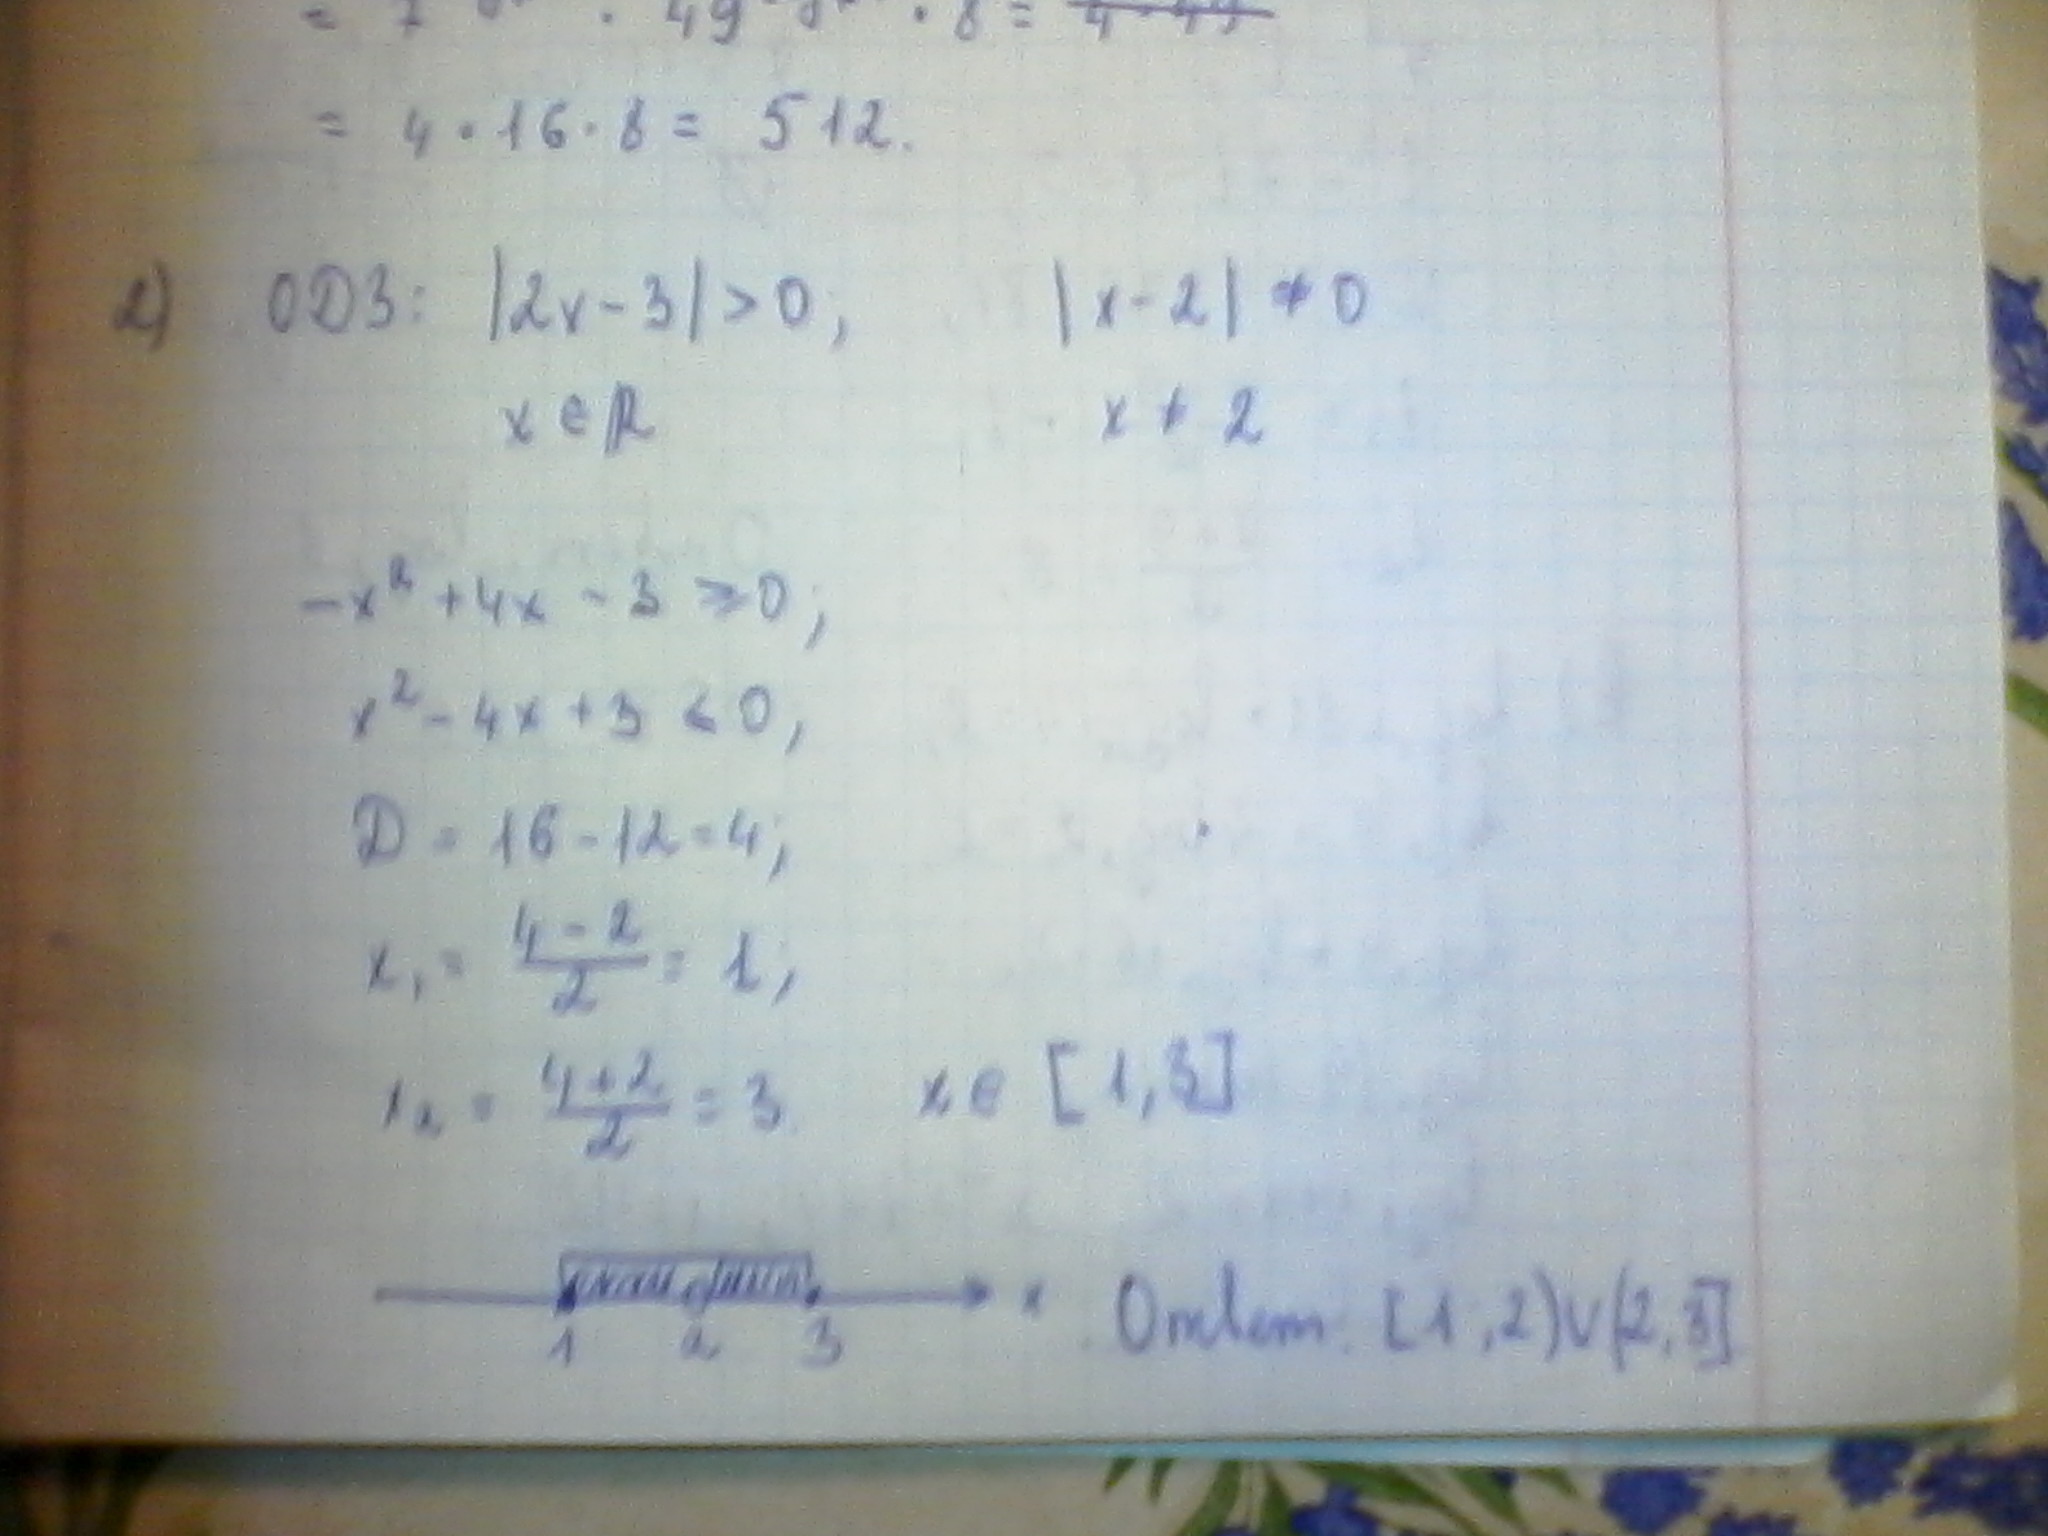 = 4 · 16 · 8 = 512.
2) ОДЗ: |2x - 3| > 0; |x - 2| ≠ 0
x ∈ ℝ x ≠ 2
-x² + 4x - 3 ≥ 0;
x² - 4x + 3 ≤ 0;
D = 16 - 12 = 4;
x₁ = (4 - 2)/2 = 1;
x₂ = (4 + 2)/2 = 3. x ∈ [1, 3]
1 2 3 x Ответ: [1, 2) ∪ (2, 3]